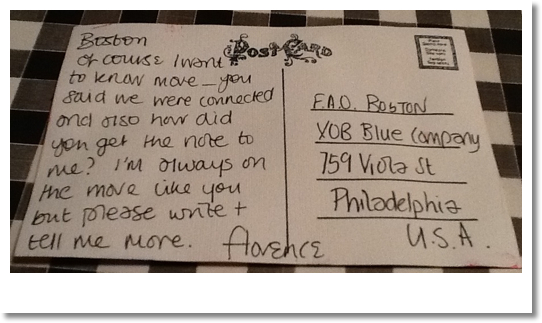 Boston
Of course I want
to know more – you
said we were connected
and also how did
you get the note to
me? I'm always on
the move like you
but please write +
tell me more. Florence
POST CARD
F.A.O. BOSTON
YOB Blue Company
759 Viola St
Philadelphia
U.S.A.